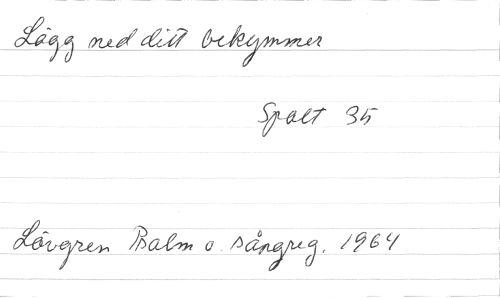 Lägg ned ditt bekymmer
Spalt 35
Lövgren Psalm o. sångreg. 1964